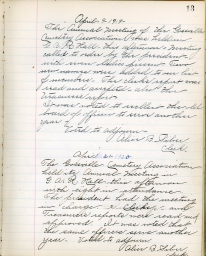 13
April 9, 1919.
The Annual meeting of the
Cemetery Association was held in
G. A. R. Hall this afternoon. Meeting
called to order by the president
with nine ladies present.
new names were added to our list
of members. The clerks report was
read and accepted also the
Treasurers report.
It was voted to the old
board of officers to serve another
year.
Voted to adjourn.
Alice B.
Clerk.
April
The Cemetery Association
held its Annual meeting in
G. A. R. Hall this afternoon
with eight in attendance.
The president had the meeting
in charge. Clerks and
Treasurers reports were read and
approved. It was voted that
the same officers serve another
year. Voted to adjourn
Alice B.
Clerk